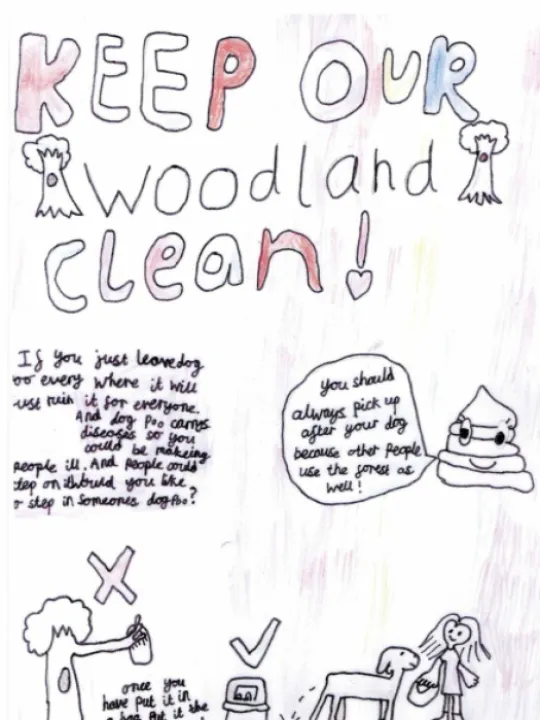 KEEP OUR
woodland
clean!
If you just leave dog
poo every where it will
just ruin it for everyone.
And dog Poo carries
diseases so you
could be makeing
people ill. And People could
step on it would you like
to step in Someones dog Poo?
you should
always pick up
after your dog
because other People
use the forest as
well!
once you
have put it in
a bag Put it the